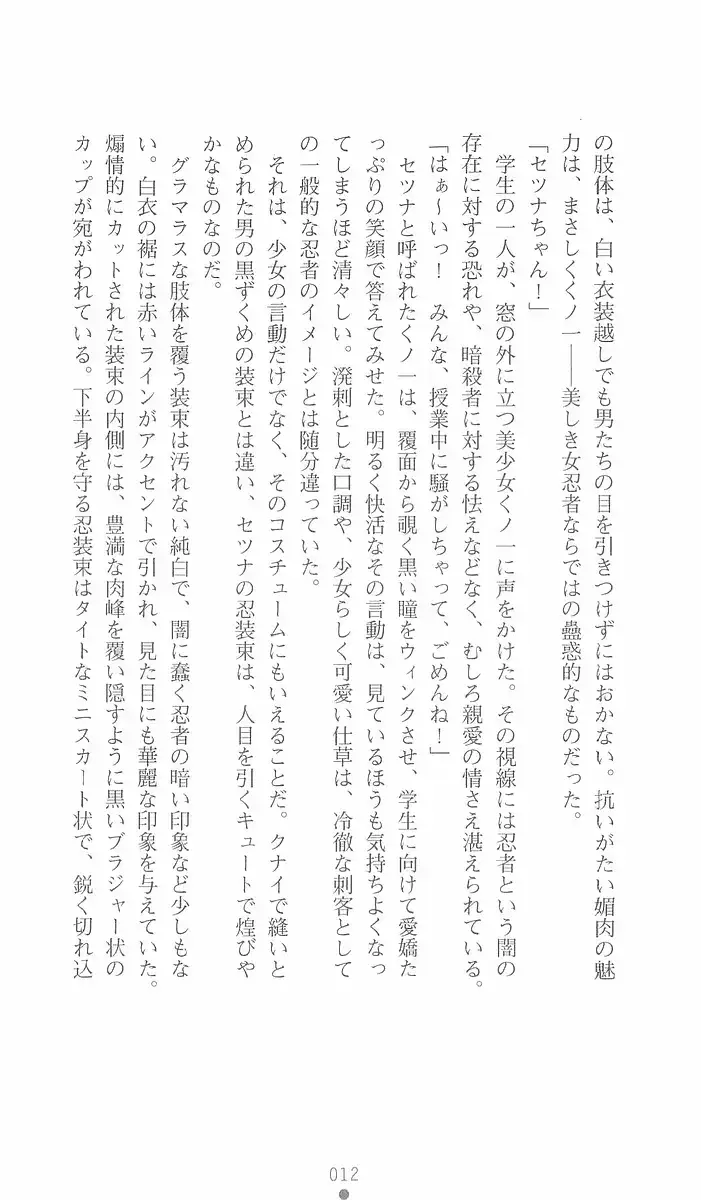 の肢体は、白い衣装越しでも男たちの目を引きつけずにはおかない。抗いがたい媚肉の魅
力は、まさしくくノ一――美しき女忍者ならではの蠱惑的なものだった。
「セツナちゃん！」
　学生の一人が、窓の外に立つ美少女くノ一に声をかけた。その視線には忍者という闇の
存在に対する恐れや、暗殺者に対する怯えなどなく、むしろ親愛の情さえ湛えられている。
「はぁ～いっ！　みんな、授業中に騒がしちゃって、ごめんね！」
　セツナと呼ばれたくノ一は、覆面から覗く黒い瞳をウィンクさせ、学生に向けて愛嬌た
っぷりの笑顔で答えてみせた。明るく快活なその言動は、見ているほうも気持ちよくなっ
てしまうほど清々しい。溌剌とした口調や、少女らしく可愛い仕草は、冷徹な刺客として
の一般的な忍者のイメージとは随分違っていた。
　それは、少女の言動だけでなく、そのコスチュームにもいえることだ。クナイで縫いと
められた男の黒ずくめの装束とは違い、セツナの忍装束は、人目を引くキュートで煌びや
かなものなのだ。
　グラマラスな肢体を覆う装束は汚れない純白で、闇に蠢く忍者の暗い印象など少しもな
い。白衣の裾には赤いラインがアクセントで引かれ、見た目にも華麗な印象を与えていた。
煽情的にカットされた装束の内側には、豊満な肉峰を覆い隠すように黒いブラジャー状の
カップが宛がわれている。下半身を守る忍装束はタイトなミニスカート状で、鋭く切れ込
012